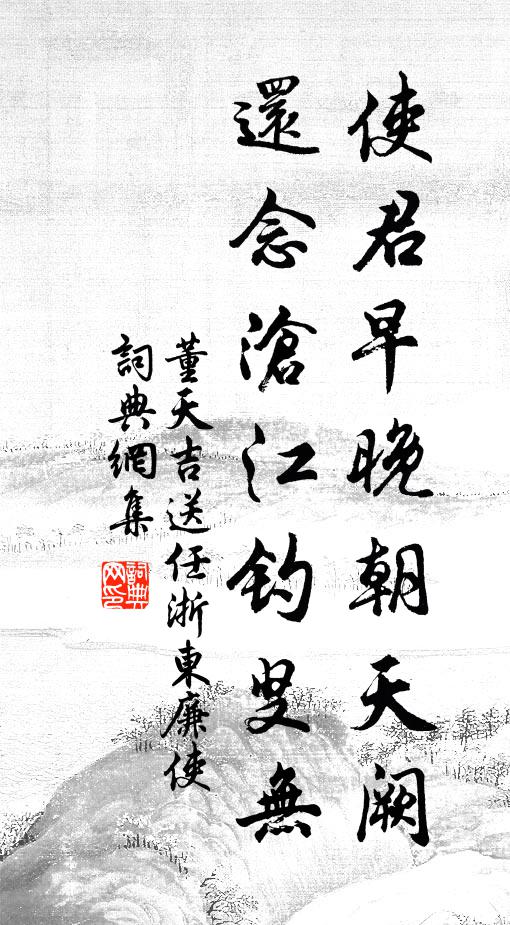 使君早晚朝天闕
還念滄江釣叟無
董天吉送任浙東廉使
詞典網集
詞典網印